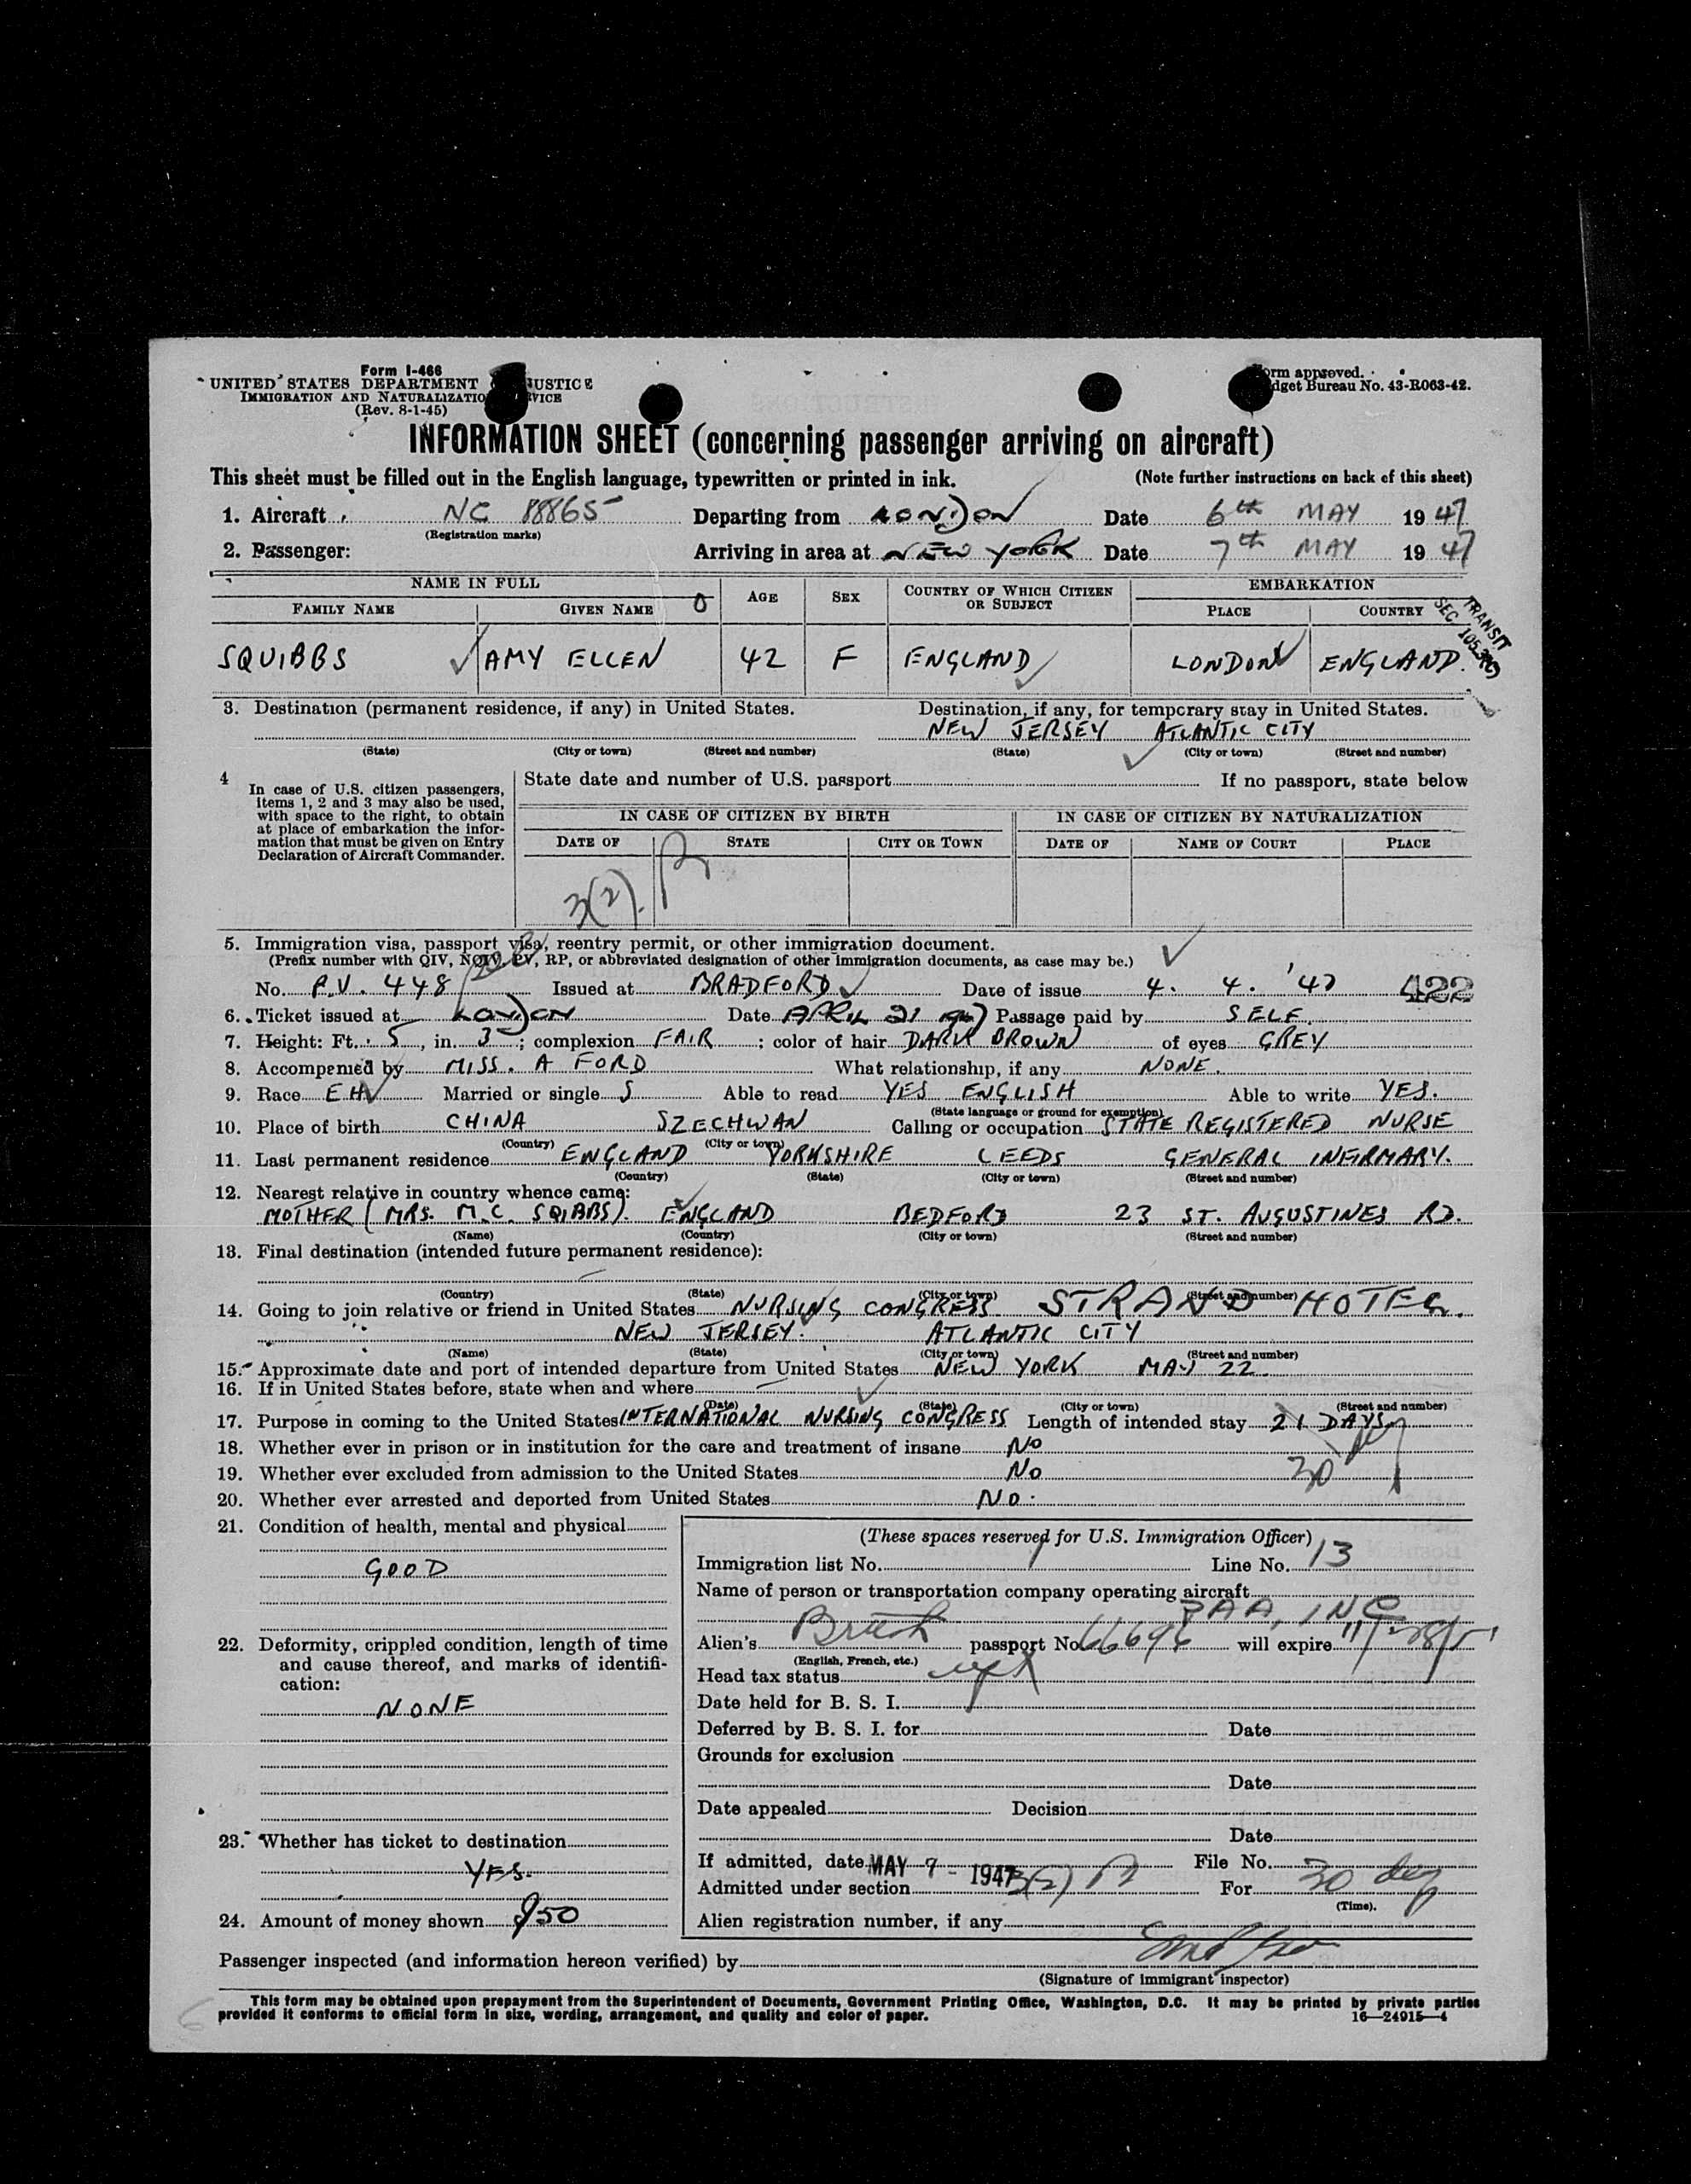 Form I-466
UNITED STATES DEPARTMENT USTICE
IMMIGRATION AND NATURALIZATIO VICE
(Rev. 8-1-45)
orm approved.
dget Bureau No. 43-R063-42.
INFORMATION SHEET (concerning passenger arriving on aircraft)
This sheet must be filled out in the English language, typewritten or printed in ink. (Note further instructions on back of this sheet)
1. Aircraft NC 88865 Departing from LONDON Date 6th MAY 1947
(Registration marks)
2. Passenger: Arriving in area at NEW YORK Date 7th MAY 1947
NAME IN FULL AGE SEX COUNTRY OF WHICH CITIZEN OR SUBJECT EMBARKATION
FAMILY NAME GIVEN NAME PLACE COUNTRY
TRANSIT
SEC
SQUIBBS AMY ELLEN 42 F ENGLAND LONDON ENGLAND.
3. Destination (permanent residence, if any) in United States. Destination, if any, for temporary stay in United States.
NEW JERSEY ATLANTIC CITY
(State) (City or town) (Street and number) (State) (City or town) (Street and number)
4 In case of U.S. citizen passengers, items 1, 2 and 3 may also be used, with space to the right, to obtain at place of embarkation the information that must be given on Entry Declaration of Aircraft Commander.
State date and number of U.S. passport If no passport, state below
IN CASE OF CITIZEN BY BIRTH IN CASE OF CITIZEN BY NATURALIZATION
DATE OF STATE CITY OR TOWN DATE OF NAME OF COURT PLACE
3(2).
5. Immigration visa, passport visa, reentry permit, or other immigration document.
(Prefix number with QIV, NQIV, PV, RP, or abbreviated designation of other immigration documents, as case may be.)
No. P.V. 448 Issued at BRADFORD Date of issue 4. 4. '47 422
6. Ticket issued at LONDON Date APRIL 21 Passage paid by SELF.
7. Height: Ft. 5, in. 3; complexion FAIR; color of hair DARK BROWN of eyes GREY
8. Accompanied by MISS. A FORD What relationship, if any NONE.
9. Race EH Married or single S Able to read YES ENGLISH Able to write YES.
(State language or ground for exemption)
10. Place of birth CHINA SZECHWAN Calling or occupation STATE REGISTERED NURSE
(Country) (City or town)
11. Last permanent residence ENGLAND YORKSHIRE LEEDS GENERAL INFIRMARY.
(Country) (State) (City or town) (Street and number)
12. Nearest relative in country whence came:
MOTHER (MRS. M.C. SQIBBS). ENGLAND BEDFORD 23 ST. AUGUSTINES RD.
(Name) (Country) (City or town) (Street and number)
13. Final destination (intended future permanent residence):
(Country) (State) (City or town) (Street and number)
14. Going to join relative or friend in United States NURSING CONGRESS STRAND HOTEL.
NEW JERSEY. ATLANTIC CITY
(Name) (State) (City or town) (Street and number)
15. Approximate date and port of intended departure from United States NEW YORK MAY 22.
16. If in United States before, state when and where
(Date) (State) (City or town) (Street and number)
17. Purpose in coming to the United States INTERNATIONAL NURSING CONGRESS Length of intended stay 21 DAYS
18. Whether ever in prison or in institution for the care and treatment of insane No
19. Whether ever excluded from admission to the United States No 30
20. Whether ever arrested and deported from United States No.
21. Condition of health, mental and physical
GOOD
22. Deformity, crippled condition, length of time and cause thereof, and marks of identification:
NONE
23. Whether has ticket to destination
YES.
24. Amount of money shown $50
(These spaces reserved for U.S. Immigration Officer)
Immigration list No. 1 Line No. 13
Name of person or transportation company operating aircraft
PAA, INC
Alien's British passport No. will expire
(English, French, etc.)
Head tax status
Date held for B. S. I.
Deferred by B. S. I. for Date
Grounds for exclusion
Date
Date appealed Decision
Date
If admitted, date MAY 7 - 1947 File No.
Admitted under section 3(2) For 30 day
(Time).
Alien registration number, if any
Passenger inspected (and information hereon verified) by
(Signature of immigrant inspector)
This form may be obtained upon prepayment from the Superintendent of Documents, Government Printing Office, Washington, D.C. It may be printed by private parties
provided it conforms to official form in size, wording, arrangement, and quality and color of paper. 16—24915—4